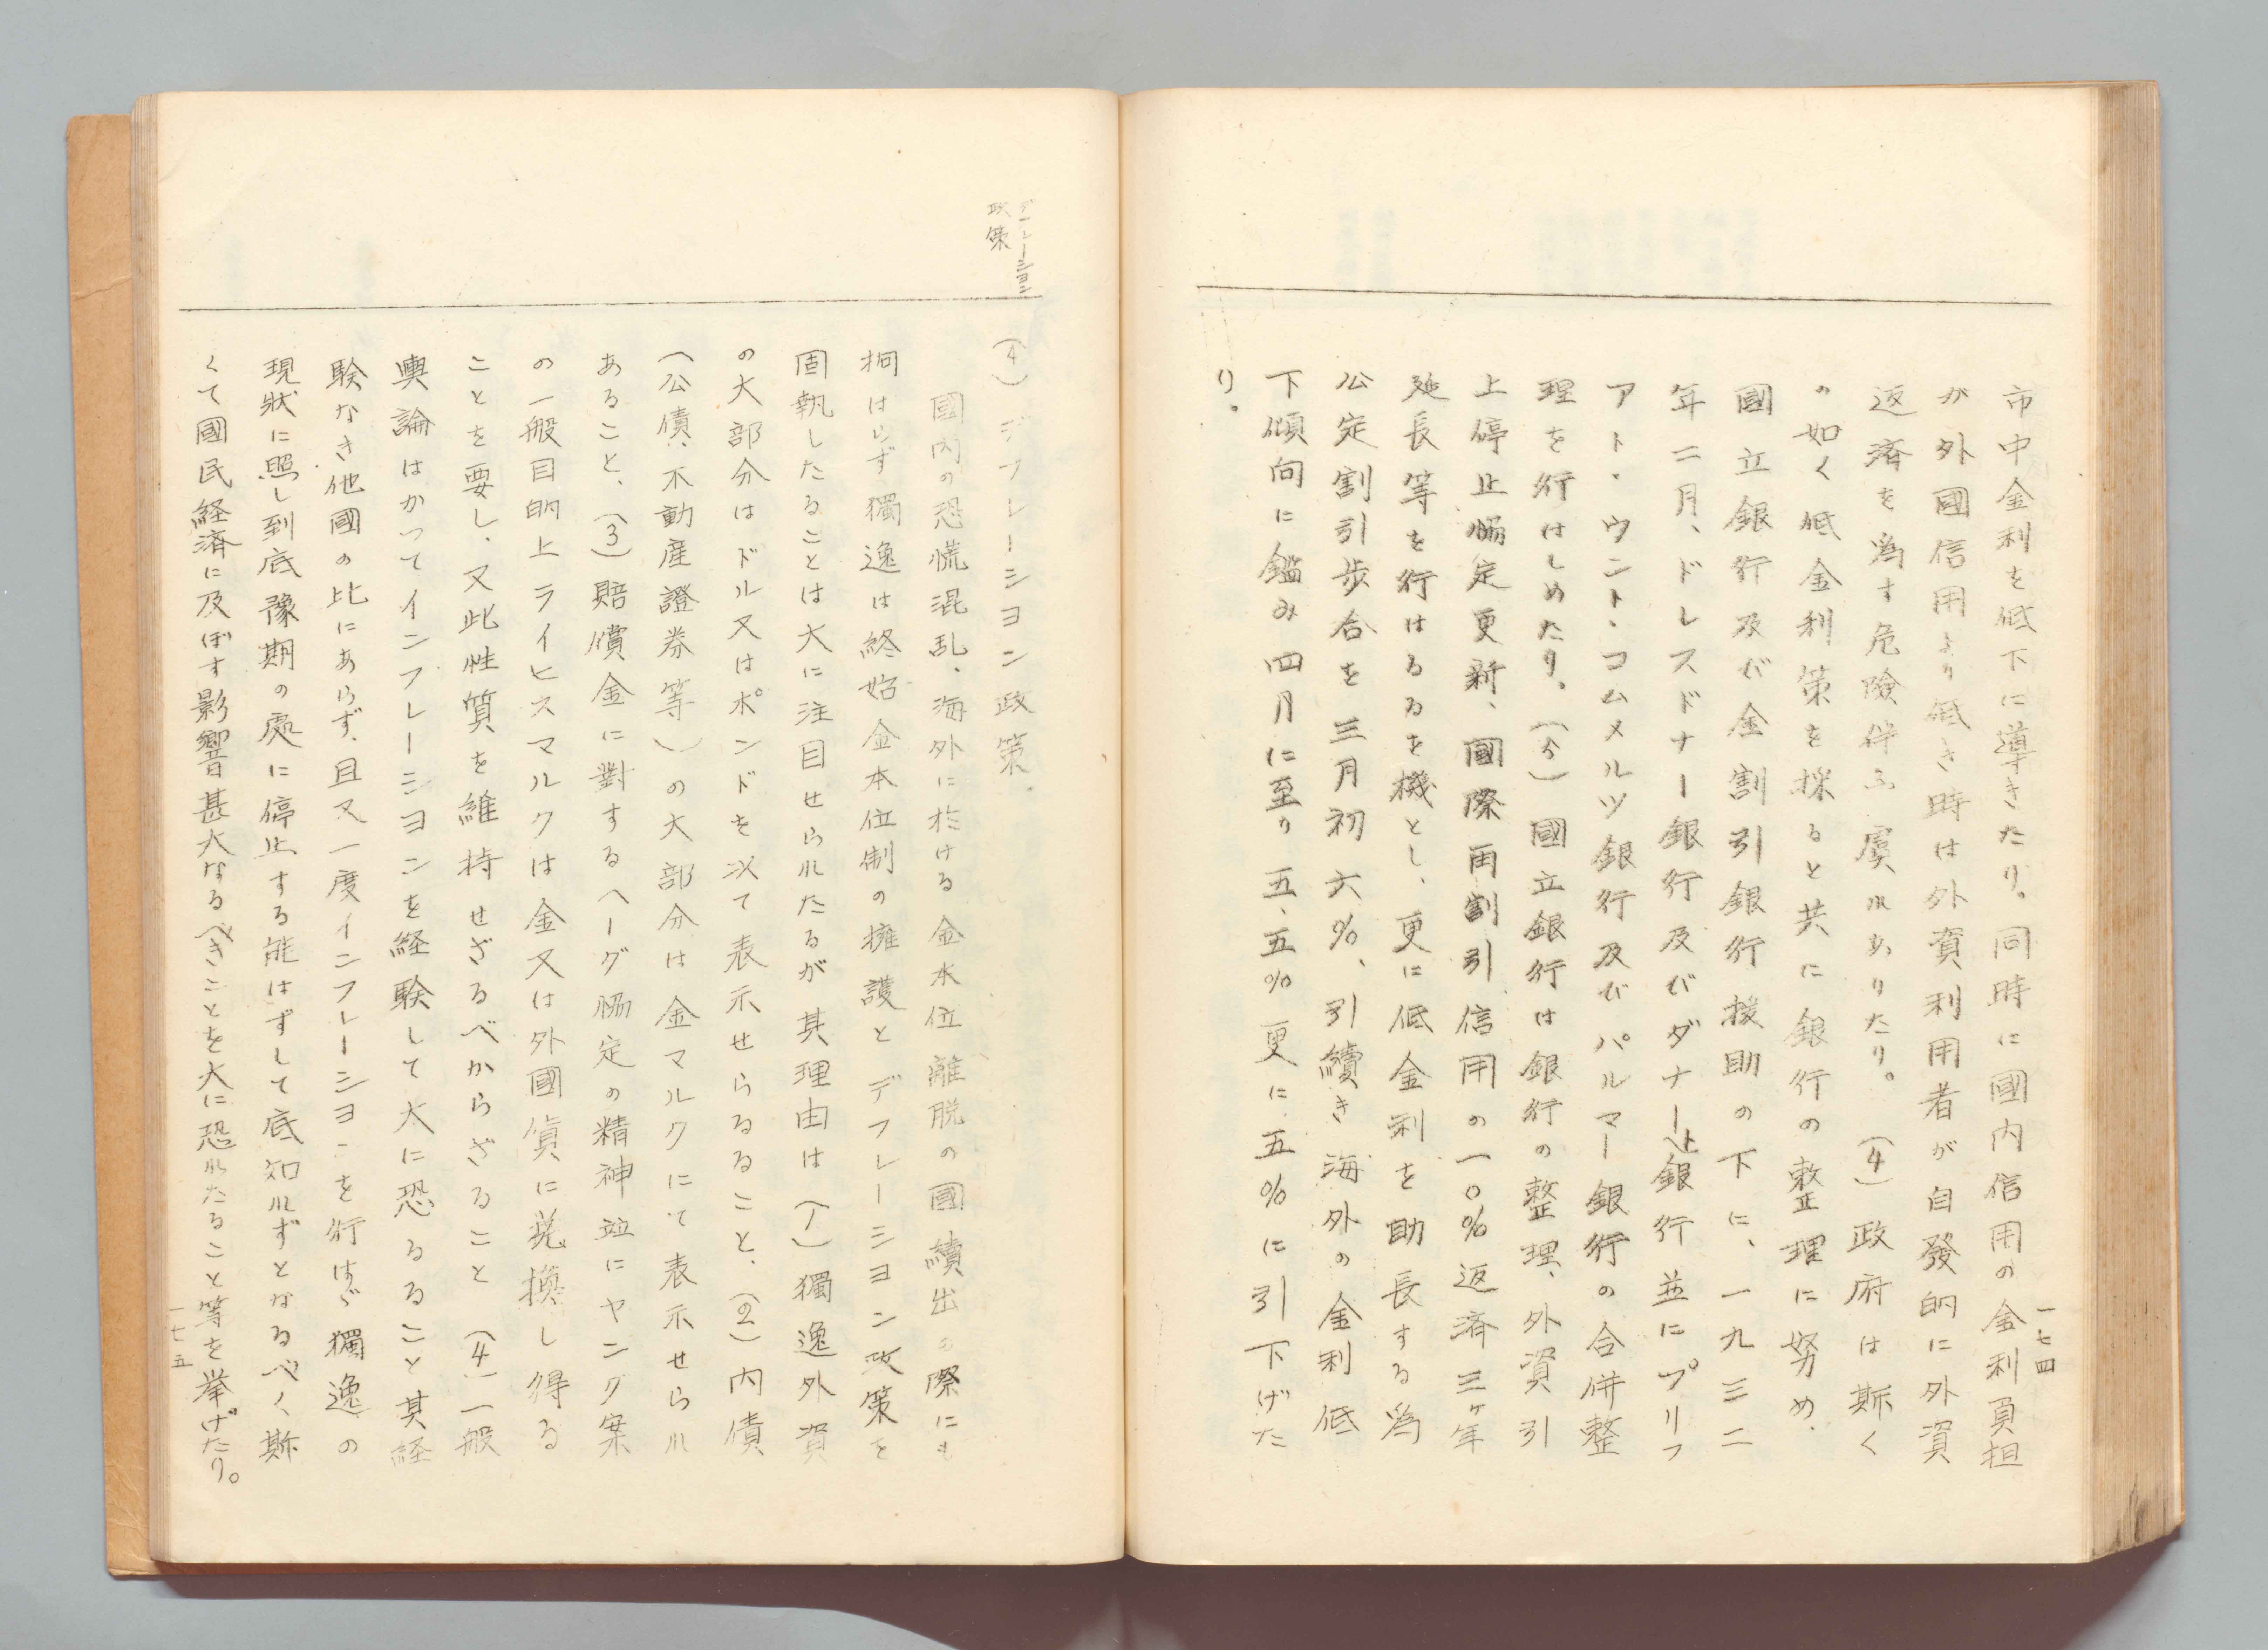 一七四
市中金利を低下に導きたり。同時に國内信用の金利負担
が外國信用より低き時は外資利用者が自發的に外資
返済を為す危險伴ふ虞れありたり。(4)政府は斯く
の如く低金利策を採ると共に銀行の整理に努め、
國立銀行及び金割引銀行援助の下に、一九三二
年二月、ドレスドナー銀行及びダナート銀行並にプリフ
アト・ウント・コムメルツ銀行及びバルマー銀行の合併整
理を行はしめたり。(5)國立銀行は銀行の整理、外資引
上停止協定更新、國際再割引信用の一〇%返済三ヶ年
延長等を行はるるを機とし、更に低金利を助長する為
公定割引歩合を三月初六%、引續き海外の金利低
下傾向に鑑み四月に至り五、五%更に五%に引下げた
り。
デフレーシヨン
政策
(4)デフレーシヨン政策、
國内の恐慌混乱、海外に於ける金本位離脱の國續出の際にも
拘はらず獨逸は終始金本位制の擁護とデフレーシヨン政策を
固執したることは大に注目せられたるが其理由は(1)獨逸外資
の大部分はドル又はポンドを以て表示せらるること、(2)内債
(公債、不動産證券等)の大部分は金マルクにて表示せられ
あること、(3)賠償金に對するヘーグ協定の精神竝にヤング案
の一般目的上ライヒスマルクは金又は外國貨に兌換し得る
ことを要し、又此性質を維持せざるべからざること(4)一般
輿論はかつてインフレーシヨンを経験して大に恐るること其経
験なき他國の比にあらず、且又一度インフレーシヨンを行はゞ獨逸の
現狀に照し到底豫期の處に停止する能はずして底知れずとなるべく斯
くて國民経済に及ぼす影響甚大なるべきことを大に恐れたること等を挙げたり。
一七五